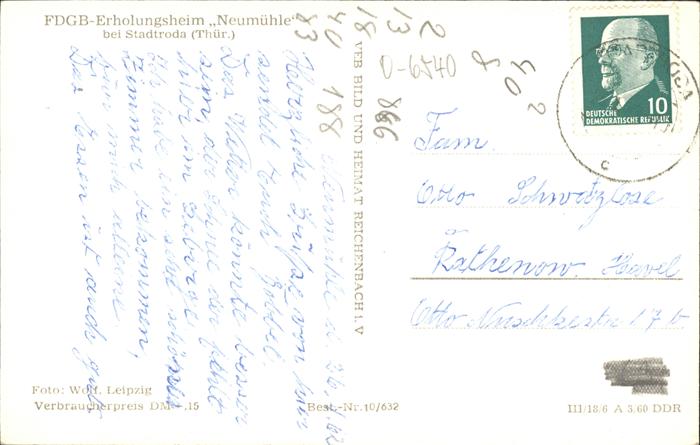 FDGB-Erholungsheim „Neumühle"
bei Stadtroda (Thür.)
Neumühle d. 26.
Herzliche Grüße von hier
sendet Euch
Das Wetter könnte besser
sein, die Sonne
hier im Gebirge.
Ich habe ein sehr schönes
Zimmer bekommen,
für mich alleine.
Das Essen ist auch gut
Foto: Wolf, Leipzig
Verbraucherpreis DM -.15
Best.-Nr. 10/632
VEB BILD UND HEIMAT REICHENBACH I. V
40
83
188
18
13
2
8
40
2
0-6540
866
10
DEUTSCHE
DEMOKRATISCHE REPUBLIK
Fam.
Otto Schwatzlose
Rathenow. Havel
Otto Nuschkestr. 17 b.
III/18/6 A 3,60 DDR